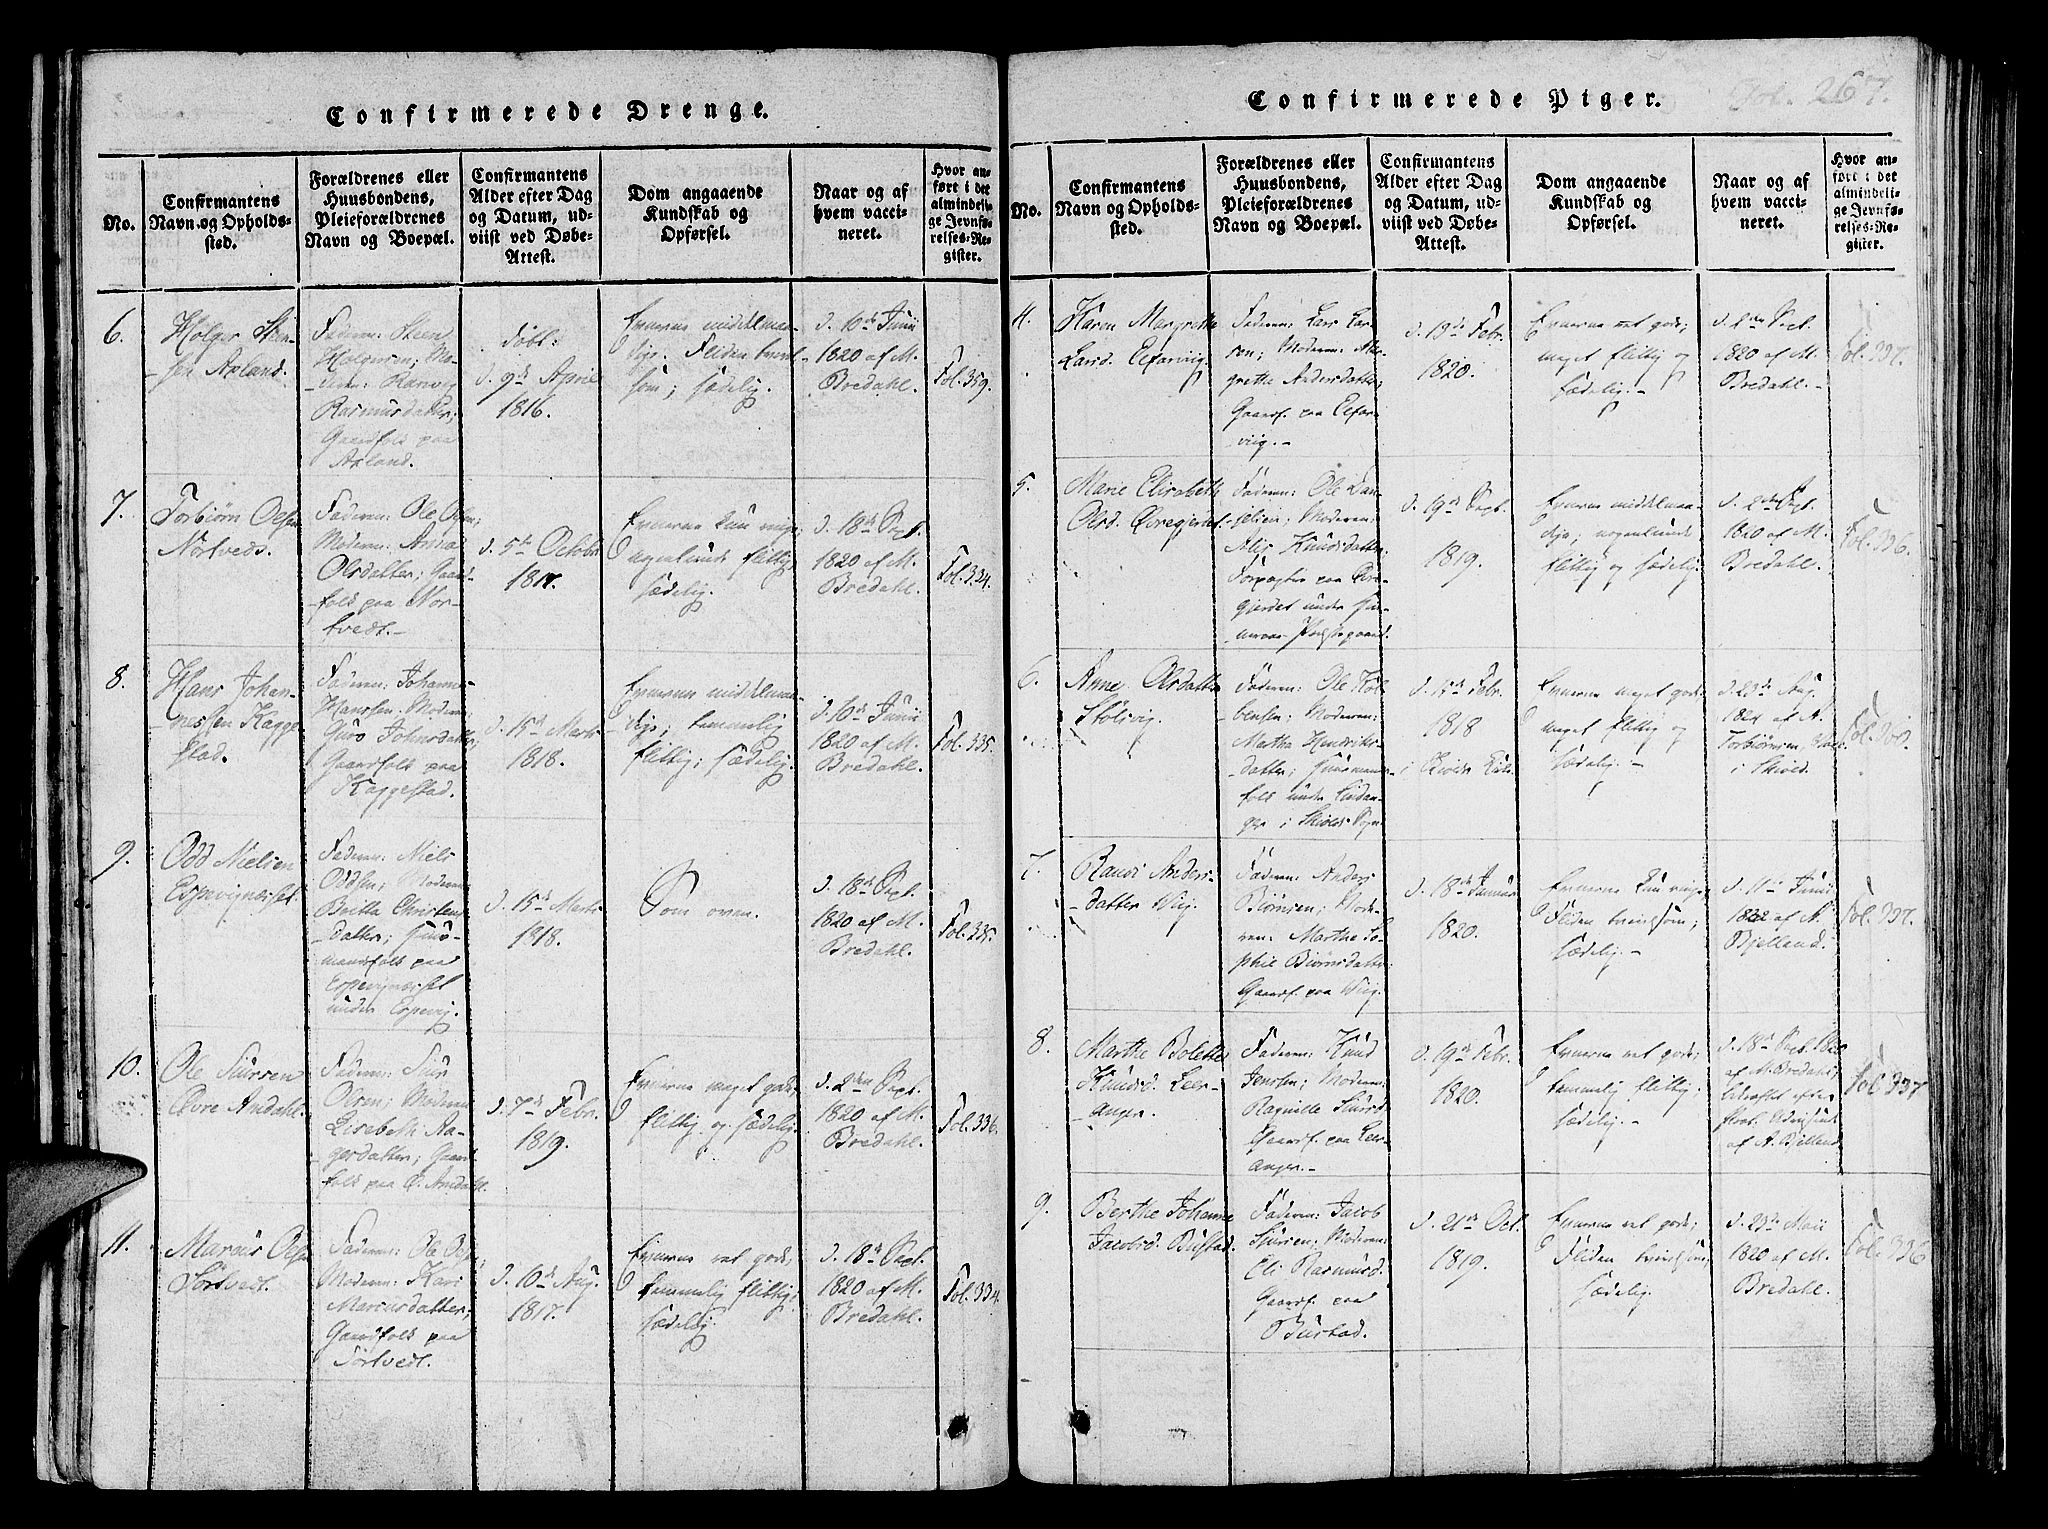 Confirmerede Drenge.
No.
Confirmantens
Navn og Opholds-
sted.
Forældrenes eller
Huusbondens,
Pleieforældrenes
Navn og Boepæl.
Confirmantens
Alder efter Dag
og Datum, ud-
viist ved Døbe-
Attest.
Dom angaaende
Kundskab og
Opførsel.
Naar og af
hvem vacci-
neret.
Hvor an-
ført i det
almindeli-
ge Jevnfø-
relses-Re-
gister.
6.
Holger Steen-
sen Axland.
Faderen: Steen
Holgersen; Mo-
deren: Ranvig
Rasmusdatter;
Gaardfolk paa
Axland.
døbt:
d. 9de April
1816.
middelmaa-
dige. Fliden tvivl-
som; sædelig.
d. 10de Junii
1820 af M.
Bredahl.
Fol. 359.
7.
Torbiörn Olsen
Nortvedt.
Faderen: Ole Olsen;
Moderen: Anna
Olsdatter; Gaard-
folk paa Nor-
tvedt.-
d. 5te Octobr
1817.
Evnerne kun ringe;
nogenlunde flittig
sædelig.
d. 18de Sept.
1820 af M.
Bredahl.
Fol. 334.
8.
Hans Johan-
nessen Kagge-
stad.
Faderen: Johannes
Hanssen; Moderen
Guro Johnsdatter;
Gaardfolk paa
Kaggestad.
d. 15de Marts
1818.
Evnerne middelmaa-
dige; temmelig
flittig; sædelig.
d. 10de Junii
1820 af M.
Bredahl.
Fol. 335.
9.
Odd Nielsen
Espevignæsset.
Faderen: Niels
Oddsen; Moderen
Britta Christens-
datter; Huus-
mandsfolk paa
Espevignæsset
under Espevig.
d. 15de Marts
1818.
Som oven.
d. 18de Sept.
1820 af M.
Bredahl.
Fol. 335.
10.
Ole Siursen
Øvre Amdahl.
Faderen: Siur
Olsen; Moderen
Lisebeth Aa-
gersdatter; Gaard-
folk paa Ø. Amdahl.
d. 7de Febr.
1819.
Evnerne meget gode;
flittig og sædelig.
d. 2den Sept.
1820 af M.
Bredahl.
Fol. 336.
11.
Marcus Olsen
Sörtvedt.
Faderen: Ole Olsen;
Moderen: Kari
Marcusdatter,
Gaardfolk paa
Sörtvedt.
d. 10de Aug.
1817.
Evnerne ret gode;
temmelig flittig;
sædelig.
d. 18de Sept.
1820 af M.
Bredahl.
Fol. 334.
Confirmerede Piger.
Fol. 267.
No.
Confirmantens
Navn og Opholds-
sted.
Forældrenes eller
Huusbondens,
Pleieforældrenes
Navn og Boepæl.
Confirmantens
Alder efter Dag
og Datum, ud-
viist ved Døbe-
Attest.
Dom angaaende
Kundskab og
Opførsel.
Naar og af
hvem vacci-
neret.
Hvor an-
ført i det
almindeli-
ge Jevnfø-
relses-Re-
gister.
4.
Karen Margrethe
Larsd. Elfarvig.
Faderen: Lars Lar-
sen; Moderen:
gretha Andersdatter;
Gaardf. paa Elfar-
vig.-
d. 19de Febr.
1820.
Evnerne ret gode;
meget flittig og
sædelig.
d. 2den Sept.
1820 af M.
Bredahl.-
Fol. 337.
5.
Marie Elisabeth
Olsd. Øvregjerdet.
Faderen: Ole Da-
nielsen; Moderen:
Knudsdatter.
Forpagter paa Øvre-
gjerdet under
Præstegaard.
d. 19de Sept.
1819.
Evnerne middelmaa-
dige; nogenlunde
flittig og sædelig.
d. 2den Sept.
1820 af M.
Bredahl.
Fol. 336.
6.
Anne Olsdatter
Stölsvig.
Faderen: Ole Kol-
bensen; Moderen:
Martha Hendriks-
datter; Huusmands-
folk under Lindan-
ger i Skiolds Sogn.
d. 15de Febr.
1818
i Skiolds
Evnerne meget gode;
meget flittig og
sædelig.-
d. 23de Aug.
af A.
Torbiörnsen,
i Skiold.
7.
Ranvi Anders-
datter Wiig.
Faderen: Anders
Biörnsen; Mode-
ren: Marthe So-
phie Biörnsdatter;
Gaardf. paa Wiig.
d. 18de Januar
1820.
Evnerne kun ringe;
Fliden tvivlsom;
sædelig.-
d. 11te Junii
1822 af A.
Bjelland.
Fol. 337.
8.
Marthe Bolette
Knudsd. Leer-
anger.
Faderen: Knud
Jenssen; Moderen:
Ragnille Siursd.
Gaardf. paa Leer-
anger.-
d. 19de Febr.
1820.
Evnerne ret gode;
temmelig flittig;
sædelig.-
d. 18de Sept. 1820
af M. Bredahl;
af A. Bjelland.
Fol. 337
9.
Berthe Johanne
Jacobsd. Bustad.
Faderen: Jacob
Siursen; Moderen:
Eli Rasmusd.
Gaardf. paa
Bustad.
d. 21de Oct.
1819.
Evnerne ret gode;
Fliden tvivlsom;
sædelig.
d. 23de Maii
1820 af M.
Bredahl.
Fol. 336